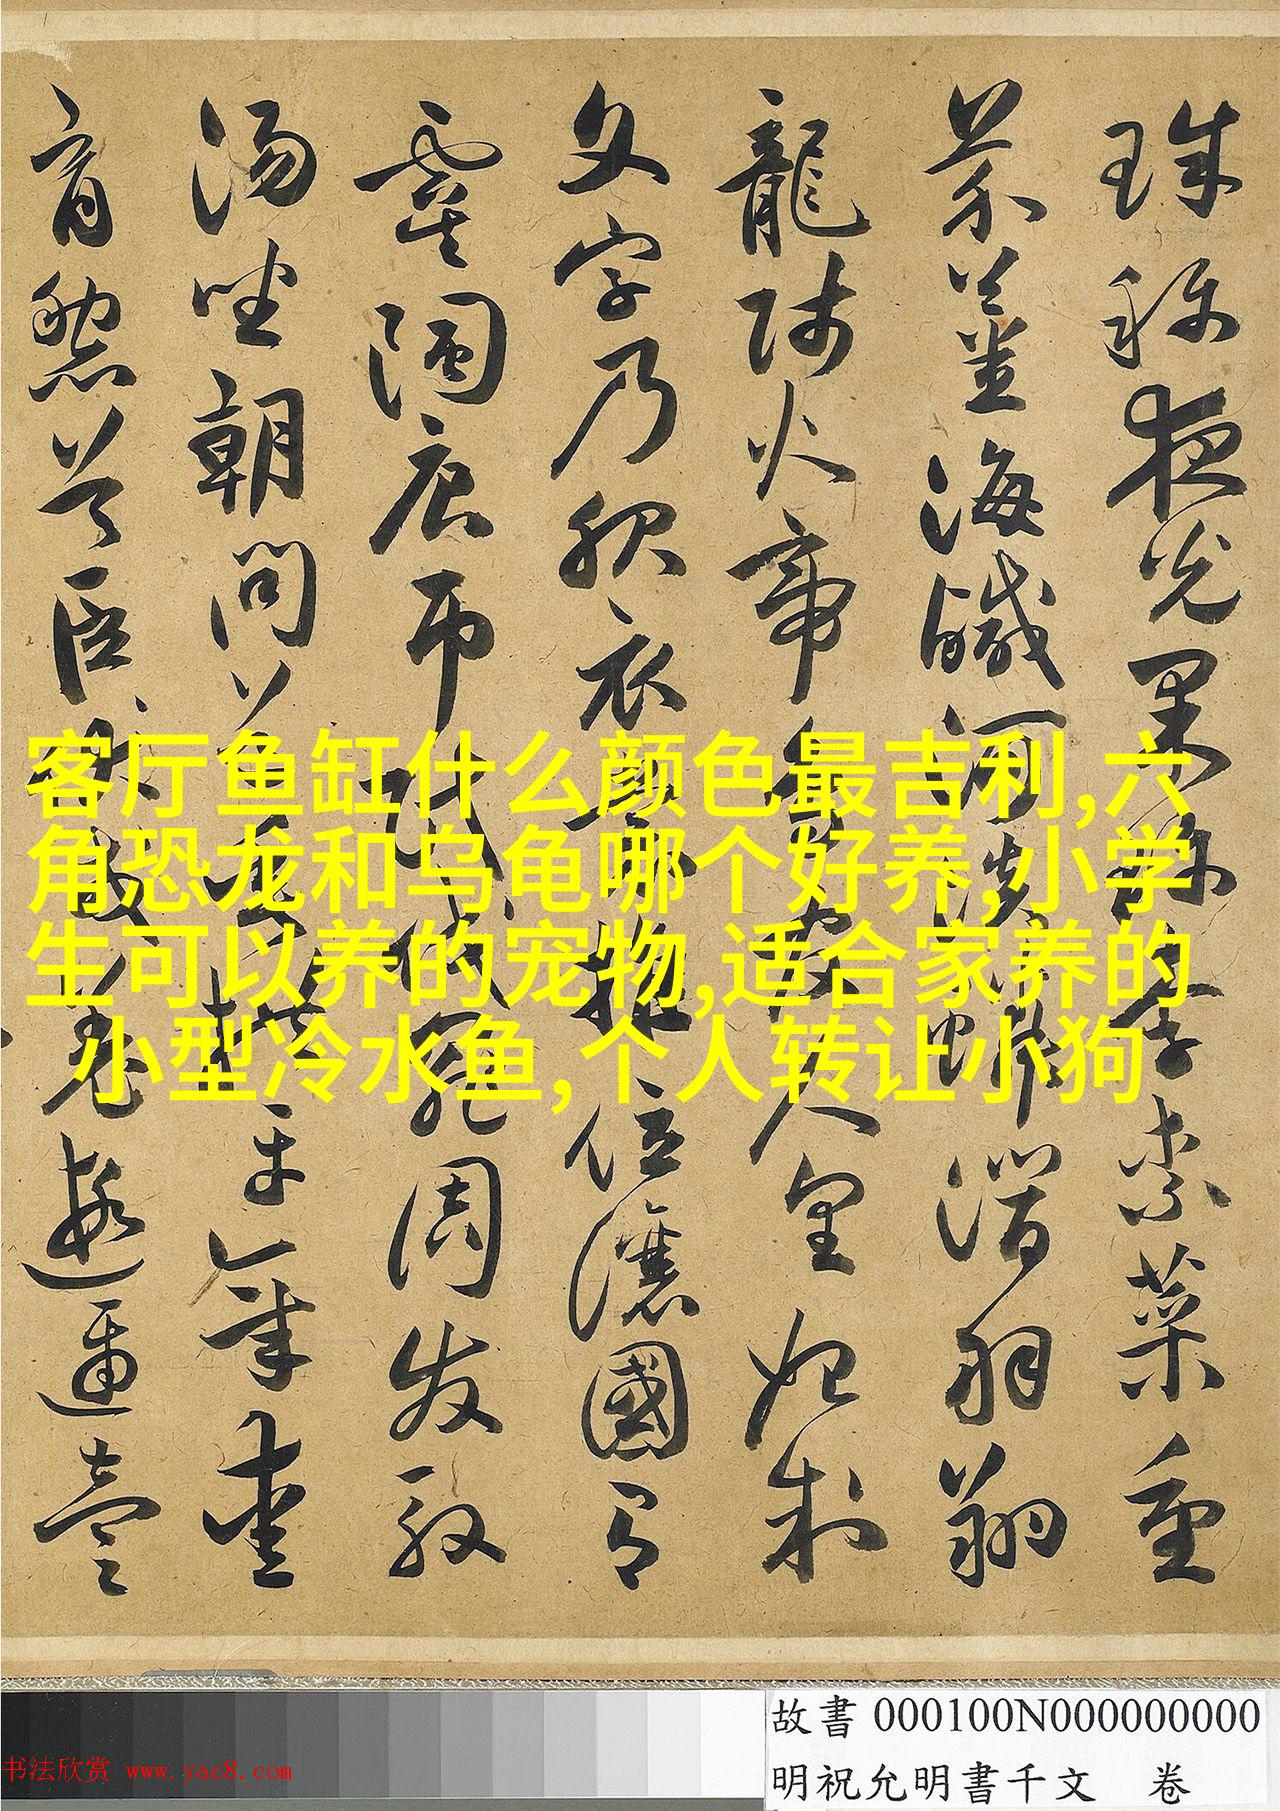 珠称夜光果珍李柰菜重
芥薑海鹹河淡鱗潛羽翔
龍師火帝鳥官人皇始制
文字乃服衣裳推位讓國有
虞陶唐弔民伐罪周发殷
湯坐朝問道垂拱平章愛
育黎首臣伏戎羌遐邇壹
客厅鱼缸什么颜色最吉利,六
角恐龙和乌龟哪个好养,小学
生可以养的宠物,适合家养的
小型冷水鱼,个人转让小狗
故書 000100N000000000
明祝允明書千文 卷
书法欣赏 www.yac8.com